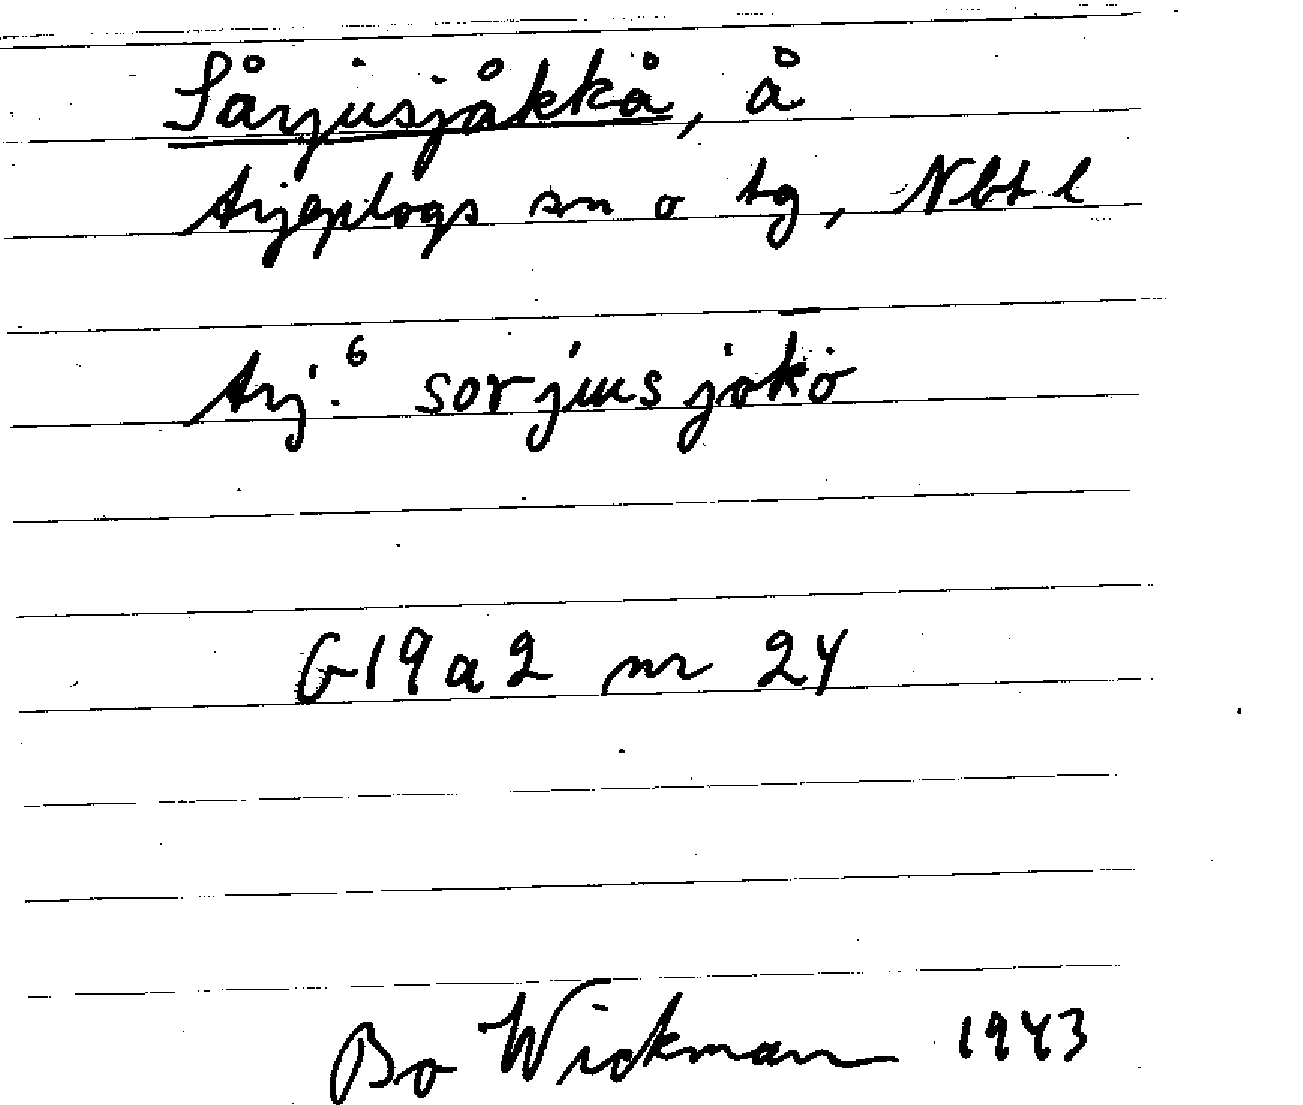 Sårjusjåkkå, å
Arjeplogs sn o tg, Nbt l
Arj.6 sorjusjokο̄
G19a2 nr 24
Bo Wickman 1943